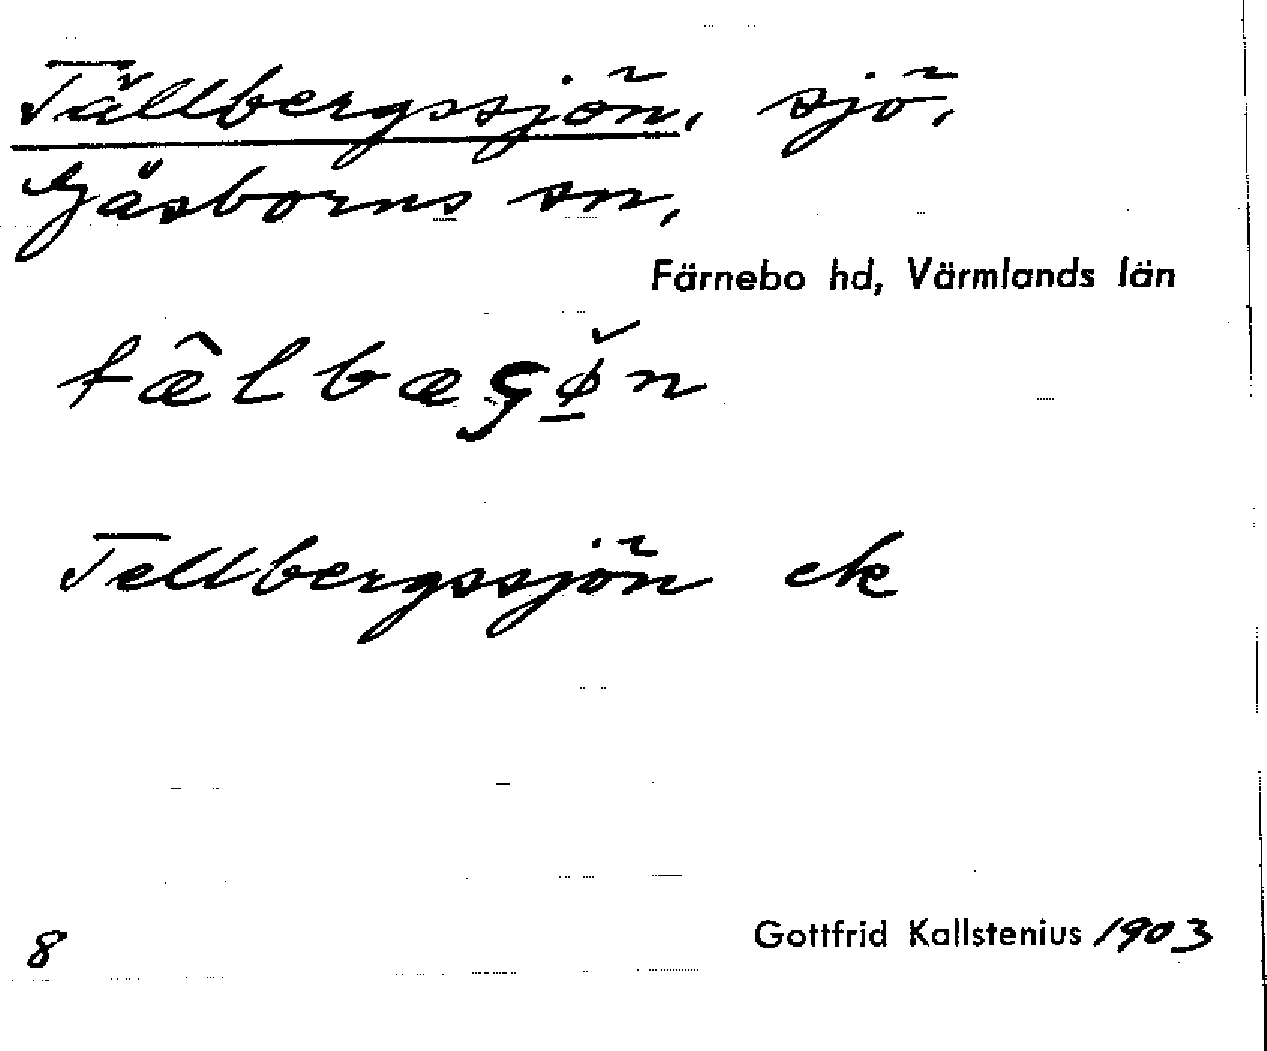 Tällbergssjön, sjö,
Gåsborns sn,
Färnebo hd, Värmlands län
tæ̂lbæçø̌n
Tellbergssjön ek
8
Gottfrid Kallstenius 1903